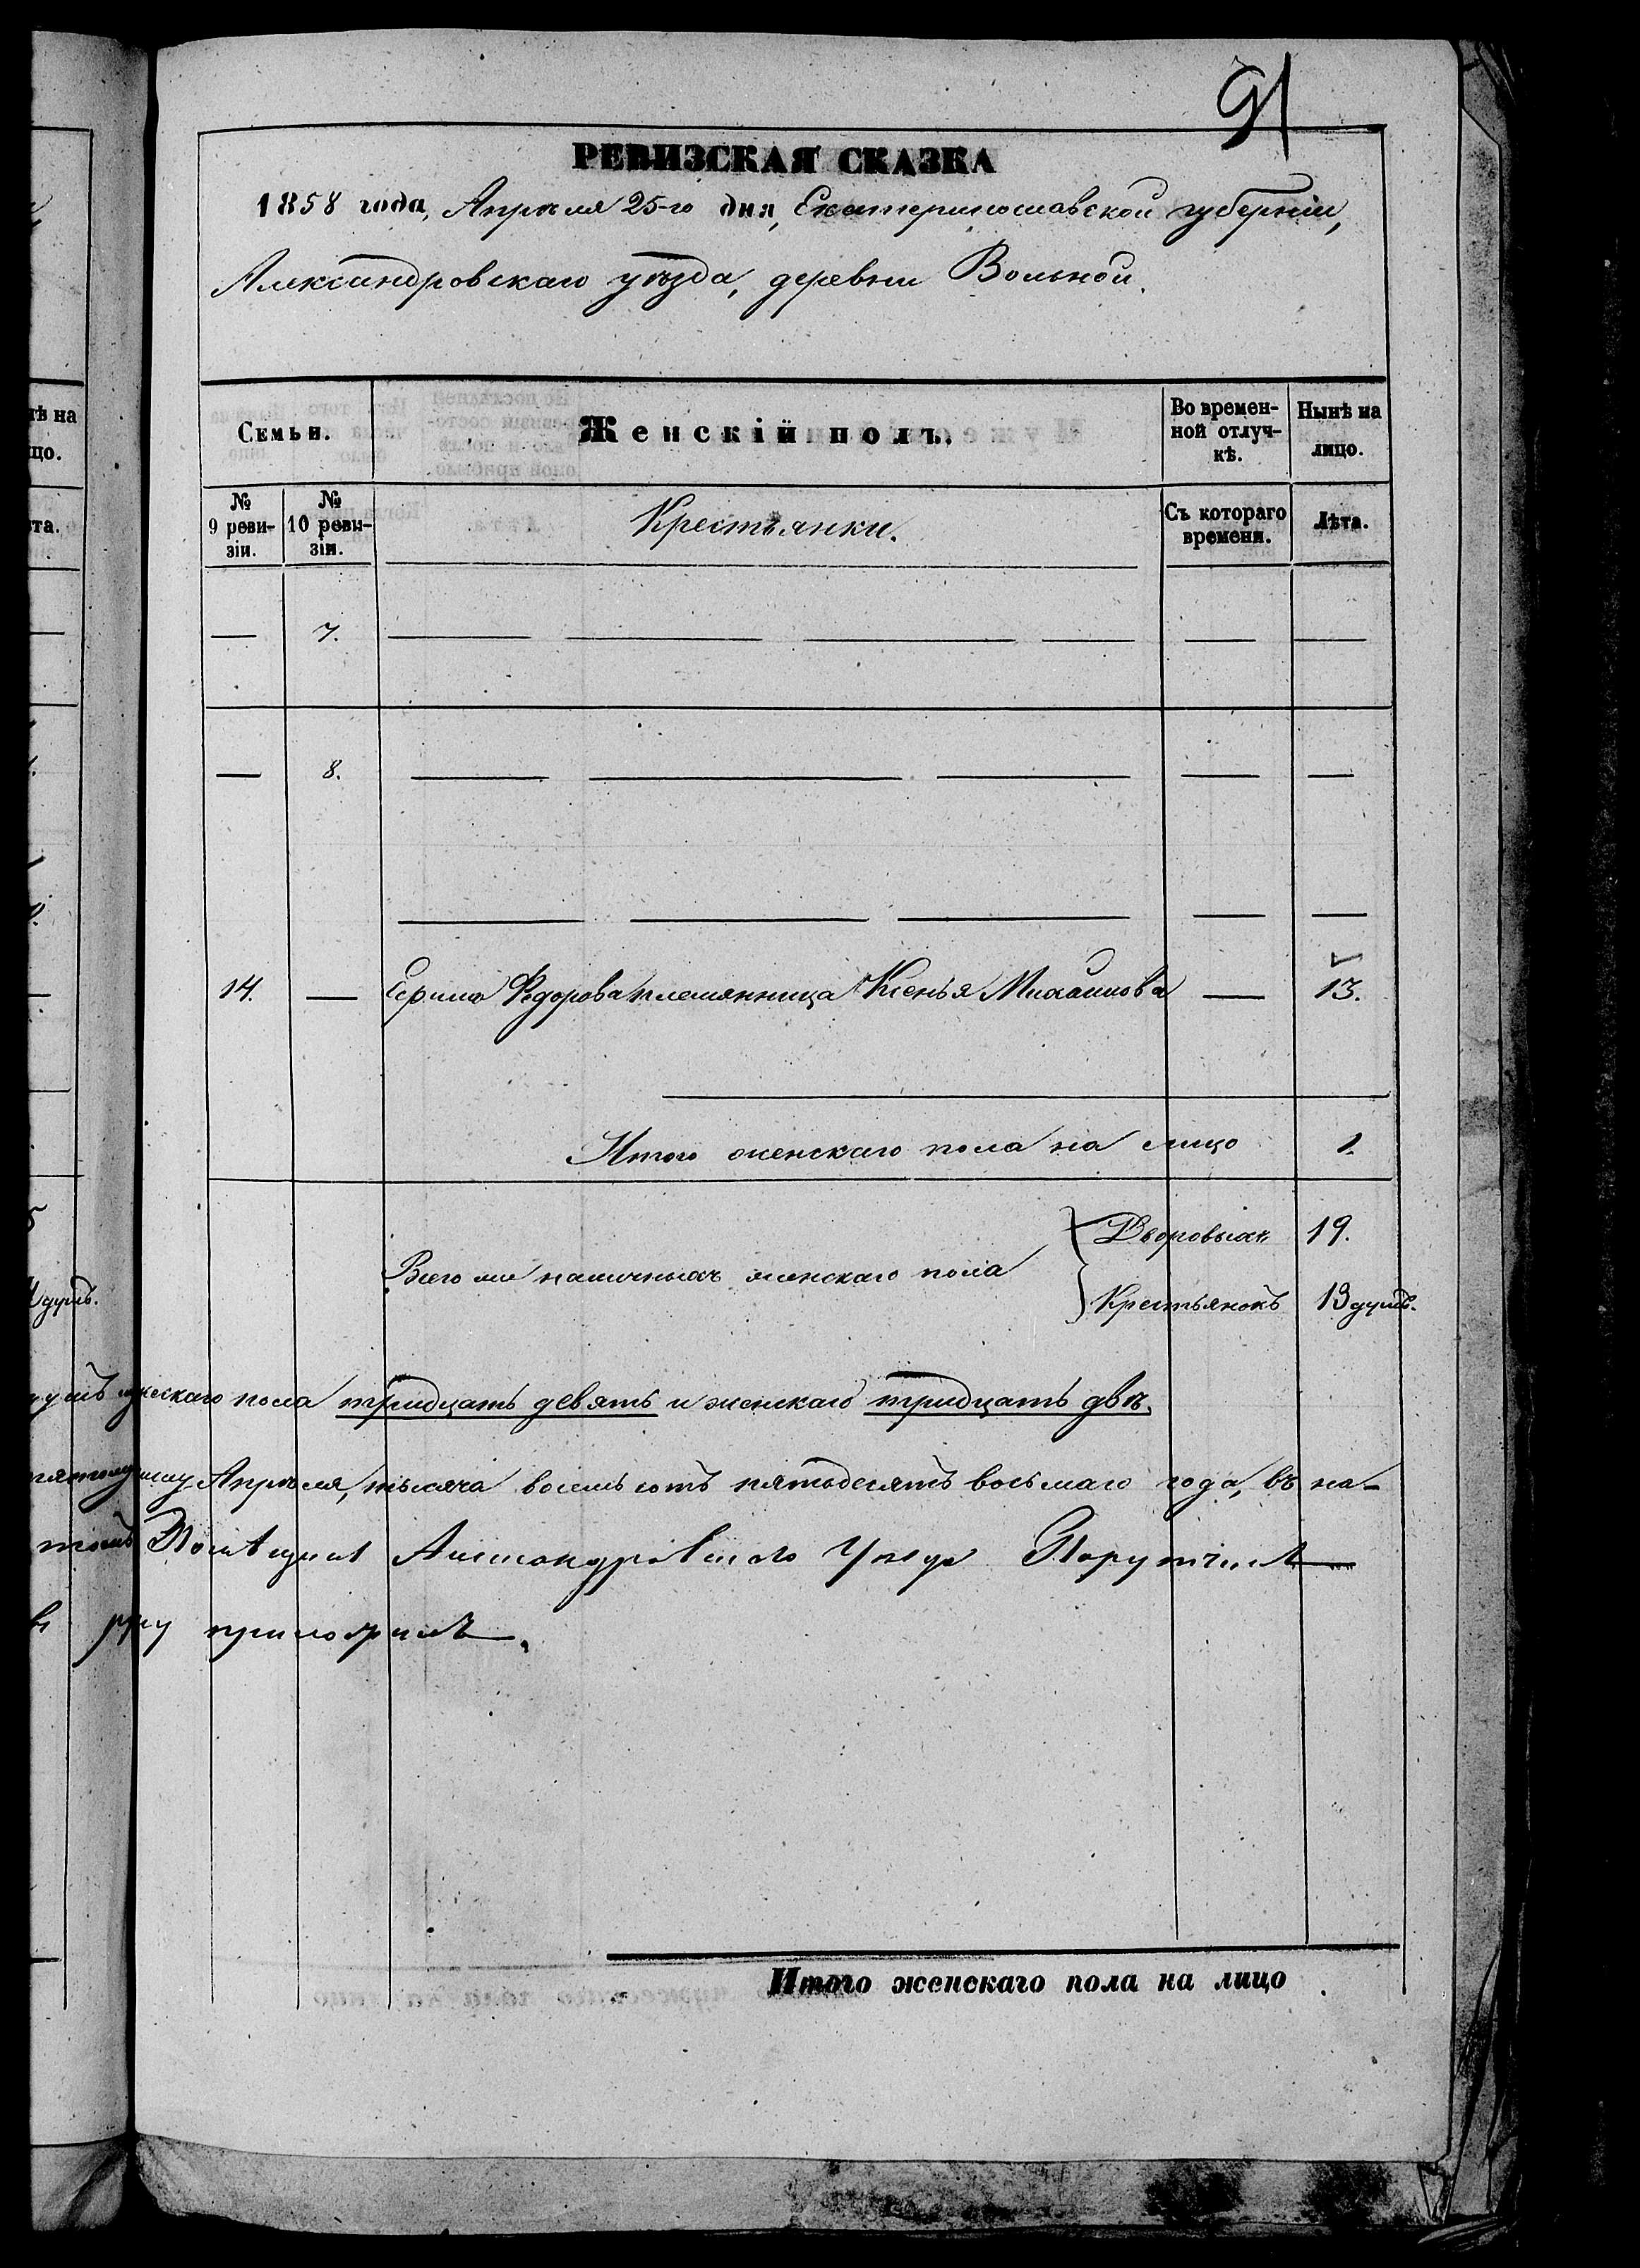 91
РЕВИЗСКАЯ СКАЗКА
1858 года, Апрѣля 25-го дня, Екатеринославской губерніи,
Александровскаго уѣзда, деревни Вольной.
ѣ на
цо.
та.
Семьи.
Женскій полъ.
Во времен-
ной отлуч-
кѣ.
Нынѣ на
лицо.
№
9 реви-
зіи.
№
10 реви-
зіи.
Крестьянки.
Съ котораго
времени.
Лѣта.
— 7. — — — — — —
— 8. — — — — —
— — — — —
14. — Ефима Федорова племянница Ксенья Михайлова — 13.
Итого женскаго пола на лицо 1.
Всего же наличныхъ женскаго пола
Дворовыхъ 19.
Крестьянокъ 13 душъ.
душъ.
мужескаго пола тридцать девять и женскаго тридцать двѣ.
Апрѣля, тысяча восемьсотъ пятьдесятъ восьмаго года, въ на-
Помѣщикъ Александровскаго Уѣзда Поручикъ
руку приложилъ.
Итого женскаго пола на лицо